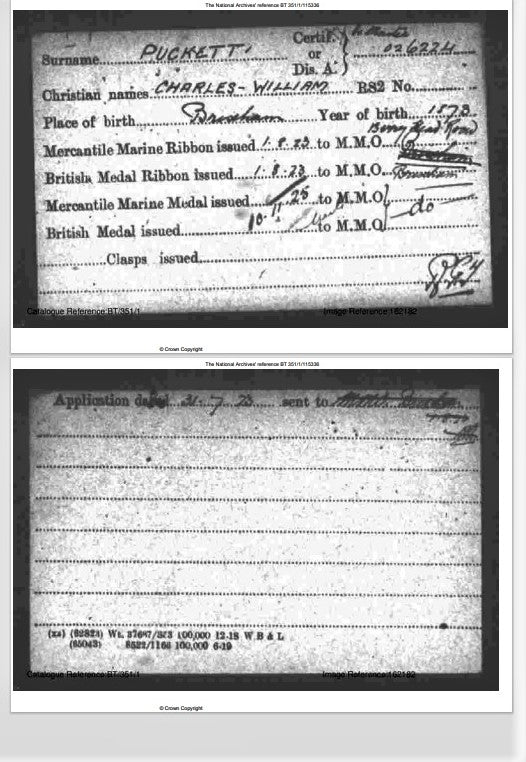 The National Archives' reference BT 351/1/115336
Surname PUCKETT
Certif. or Dis. A. 026224
Christian names CHARLES-WILLIAM R82 No.
Place of birth Brixham Year of birth 1873
Berry Head Road
Mercantile Marine Ribbon issued 1.8.23 to M.M.O.
British Medal Ribbon issued 1.8.23 to M.M.O. Brixham
Mercantile Marine Medal issued to M.M.O.
10.11.25 do
British Medal issued to M.M.O.
Clasps issued
Catalogue Reference:BT/351/1 Image Reference:162182
© Crown Copyright
The National Archives' reference BT 351/1/115336
Application dated 31.7.23 sent to
(xx) (82824) Wt. 100,000 12-18 W B & L
(85043) 100,000 6-19
Catalogue Reference:BT/351/1 Image Reference:162182
© Crown Copyright